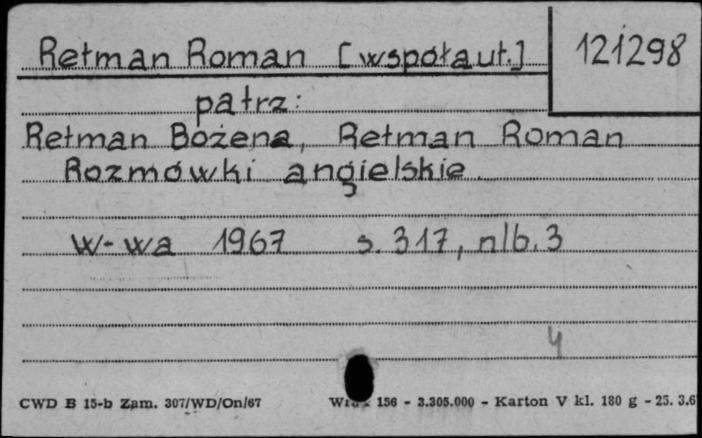 Retman Roman [współaut.] 121298
patrz:
Retman Bożena, Retman Roman
Rozmówki angielskie.
W-wa 1967 s. 317, nlb. 3
4
CWD B 15-b Zam. 307/WD/On/67 156 - 3.305.000 - Karton V kl. 180 g - 25. 3.6